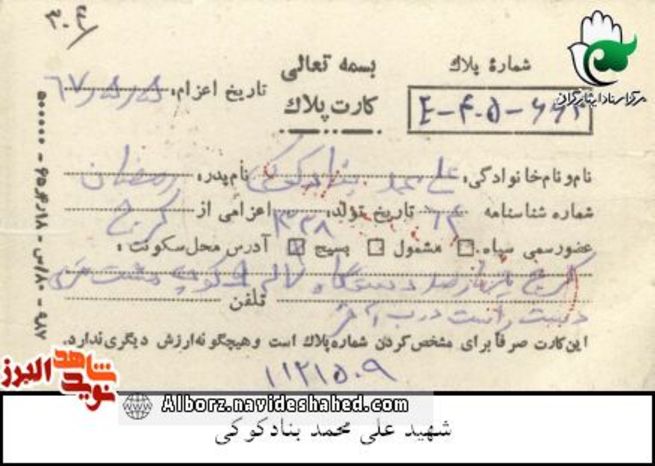 ۳۰۶
بسمه تعالی
کارت پلاک
شمارهٔ پلاک
E-۴۰۵-۶۶۲
تاریخ اعزام: ۶۷/۵/۵
مرکز اسناد ایثارگران
نام و نام خانوادگی: علی محمد بنادکوکی نام پدر: رمضان
شماره شناسنامه ۱۲ تاریخ تولد: ۱۳۲۸ اعزامی از: کرج
عضو رسمی سپاه: مشمول بسیج آدرس محل سکونت:
کرج چهارصد دستگاه
دست راست درب آخر تلفن
این کارت صرفاً برای مشخص کردن شماره پلاک است و هیچگونه ارزش دیگری ندارد.
۱۱۲۱۵۰۹
۹۸۷ - س/۸۰ - ۶۵/۴/۱۸ - ۵۰۰۰۰۰
نوید شاهد البرز
Alborz.navideshahed.com
شهید علی محمد بنادکوکی